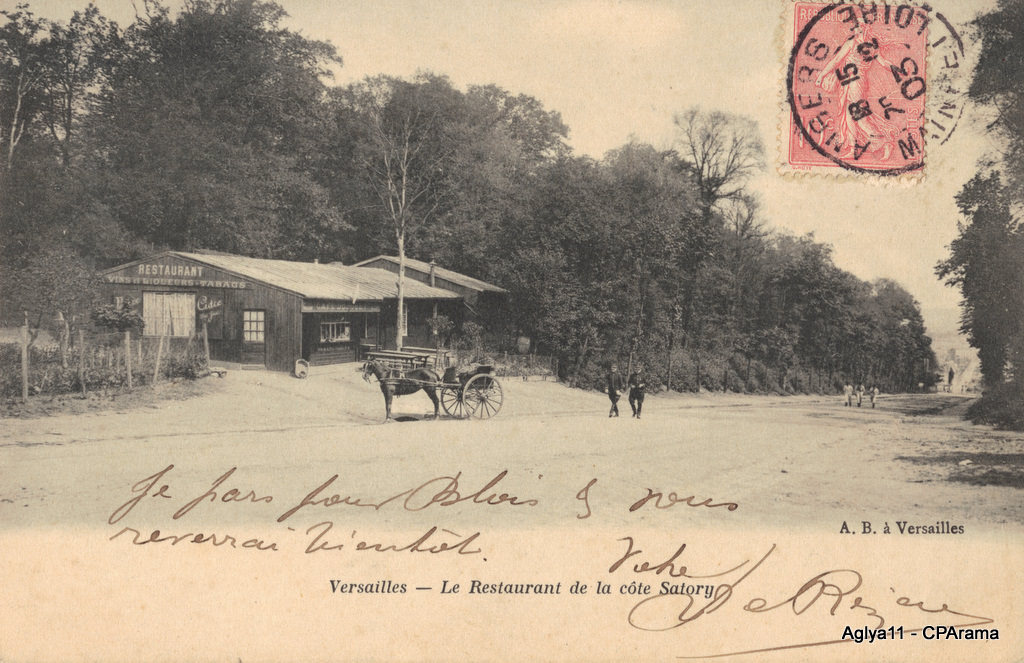 RESTAURANT
VINS & LIQUEURS - TABACS
Cidre
ANGERS
MAINE-ET-LOIRE
18 15
12
03
A. B. à Versailles
Je pars pour Blois &
vous
reverrai bientôt.
Versailles — Le Restaurant de la côte Satory
Votre
Aglya11 - CPArama